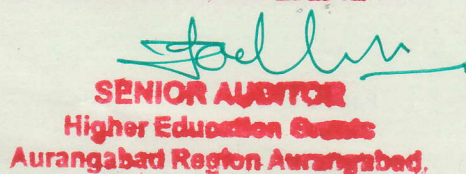 SENIOR AUDITOR
Higher Education Grants
Aurangabad Region Aurangabad.